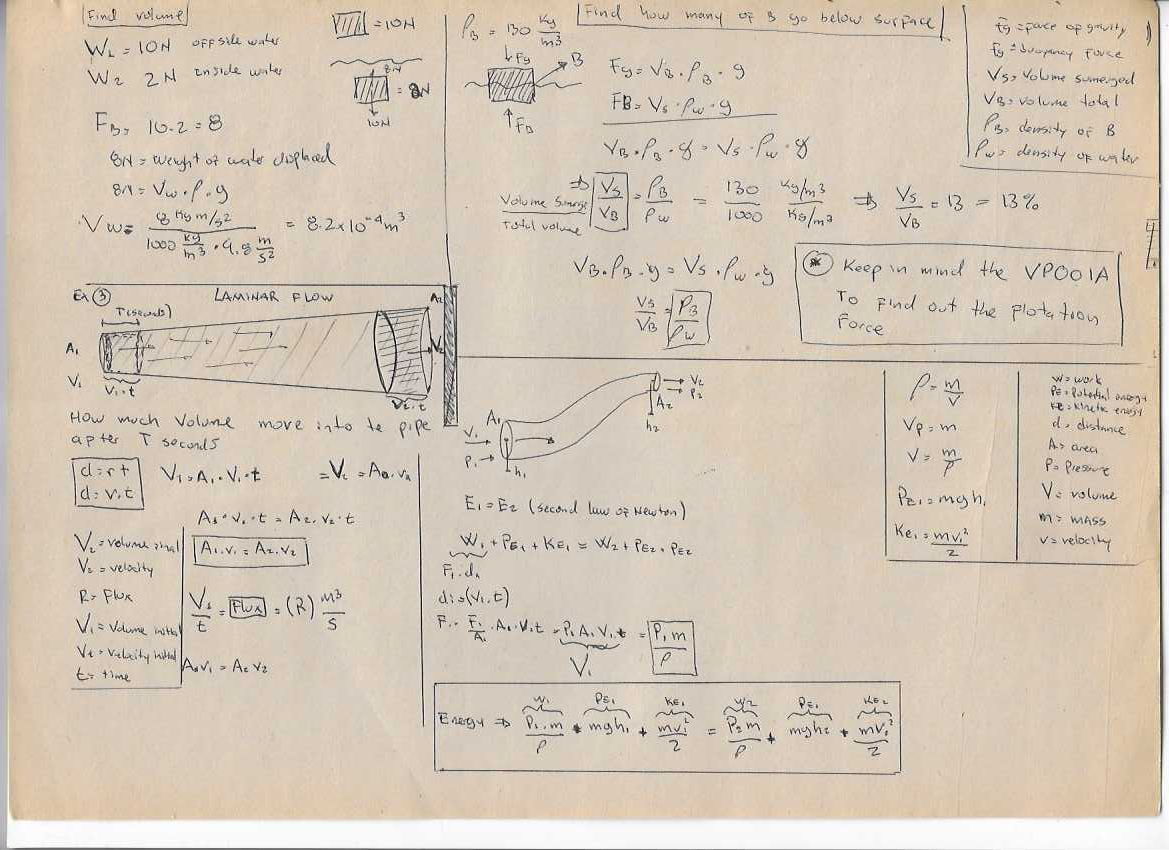 Find volume
W1 = 10N offside water
W2 2N inside water
= 10N
8N
= 8N
10N
FB = 10-2 = 8
8N = weight of water displaced
8N = Vw · ρ · g
Vw = 8 Kg m/s² / 1000 kg/m³ · 9.8 m/s² = 8.2x10⁻⁴ m³
ρB = 130 Kg/m³
Find how many of B go below surface
Fg
B
FB
Fg = VB · ρB · g
FB = Vs · ρw · g
VB · ρB · g = Vs · ρw · g
Volume Sumerge / Total volume
⇒ Vs/VB = ρB/ρw = 130/1000 Kg/m³ / Kg/m³ ⇒ Vs/VB = 13 = 13%
VB · ρB · g = Vs · ρw · g
Vs/VB = ρB/ρw
Fg = Force of gravity
Fg = buoyancy Force
Vs = Volume sumerged
VB = volume total
ρB = density of B
ρw = density of water
* Keep in mind the VP001A
To Find out the flotation
Force
Ex ③ LAMINAR FLOW
T(seconds)
A1
A2
V1
V1·t
V2·t
How much Volume move into te pipe
after T seconds
d = r t
d = v.t
V1 = A1 · V1 · t
A1 · V1 · t = A2 · V2 · t
A1 · V1 = A2 · V2
V2 = velocity
R = Flux
V1 = Volume initial
V1 = velocity initial
t = time
V1/t = Flux = (R) m³/s
A1V1 = A2V2
A1
V1
P1
h1
V2
P2
A2
h2
E1 = E2 (second law of Newton)
W1 + PE1 + KE1 = W2 + PE2 + PE2
F1 · d1
d1 = (V1.t)
F1 · F1/A1 · A1 · V1 t = P1 A1 V1 t = P1 m/ρ
V1
ρ = m/V
Vρ = m
V = m/ρ
PE1 = mgh1
KE1 = mv1²/2
W = work
PE = Potential energy
KE = kinetic energy
d = distance
A = area
P = Pressure
V = volume
m = mass
v = velocity
W1 PE1 KE1 W2 PE1 KE2
Energy ⇒ P1.m/ρ + mgh1 + mv1²/2 = P2m/ρ + mgh2 + mV1²/2